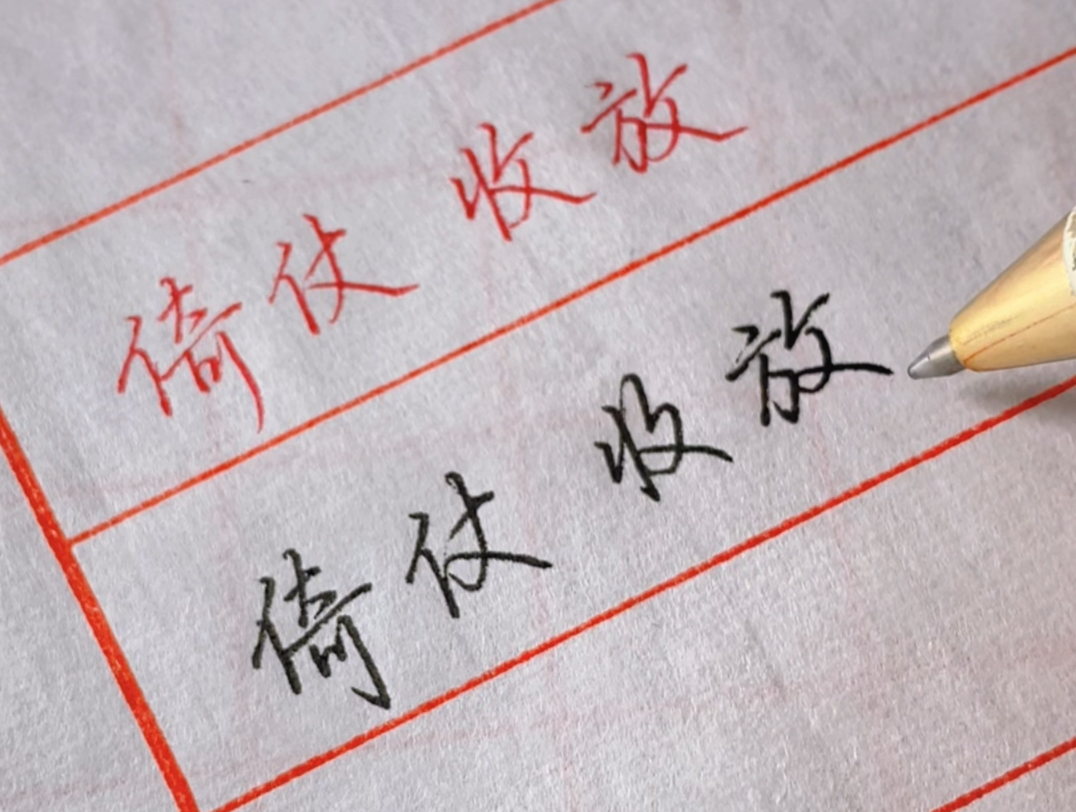 倚仗 收放
倚仗 收放